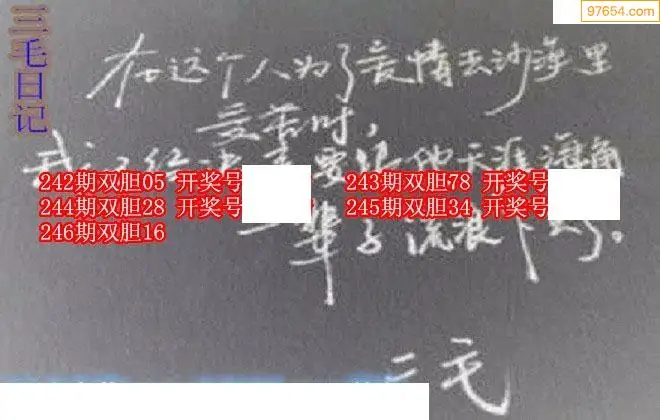 97654.com
三毛日记
在这个人为了爱情去沙漠里
受苦时,
我心里已经决定要跟他天涯海角
242期双胆05 开奖号
243期双胆78 开奖号
244期双胆28 开奖号
245期双胆34 开奖号
246期双胆16
一辈子流浪下去了。
三毛